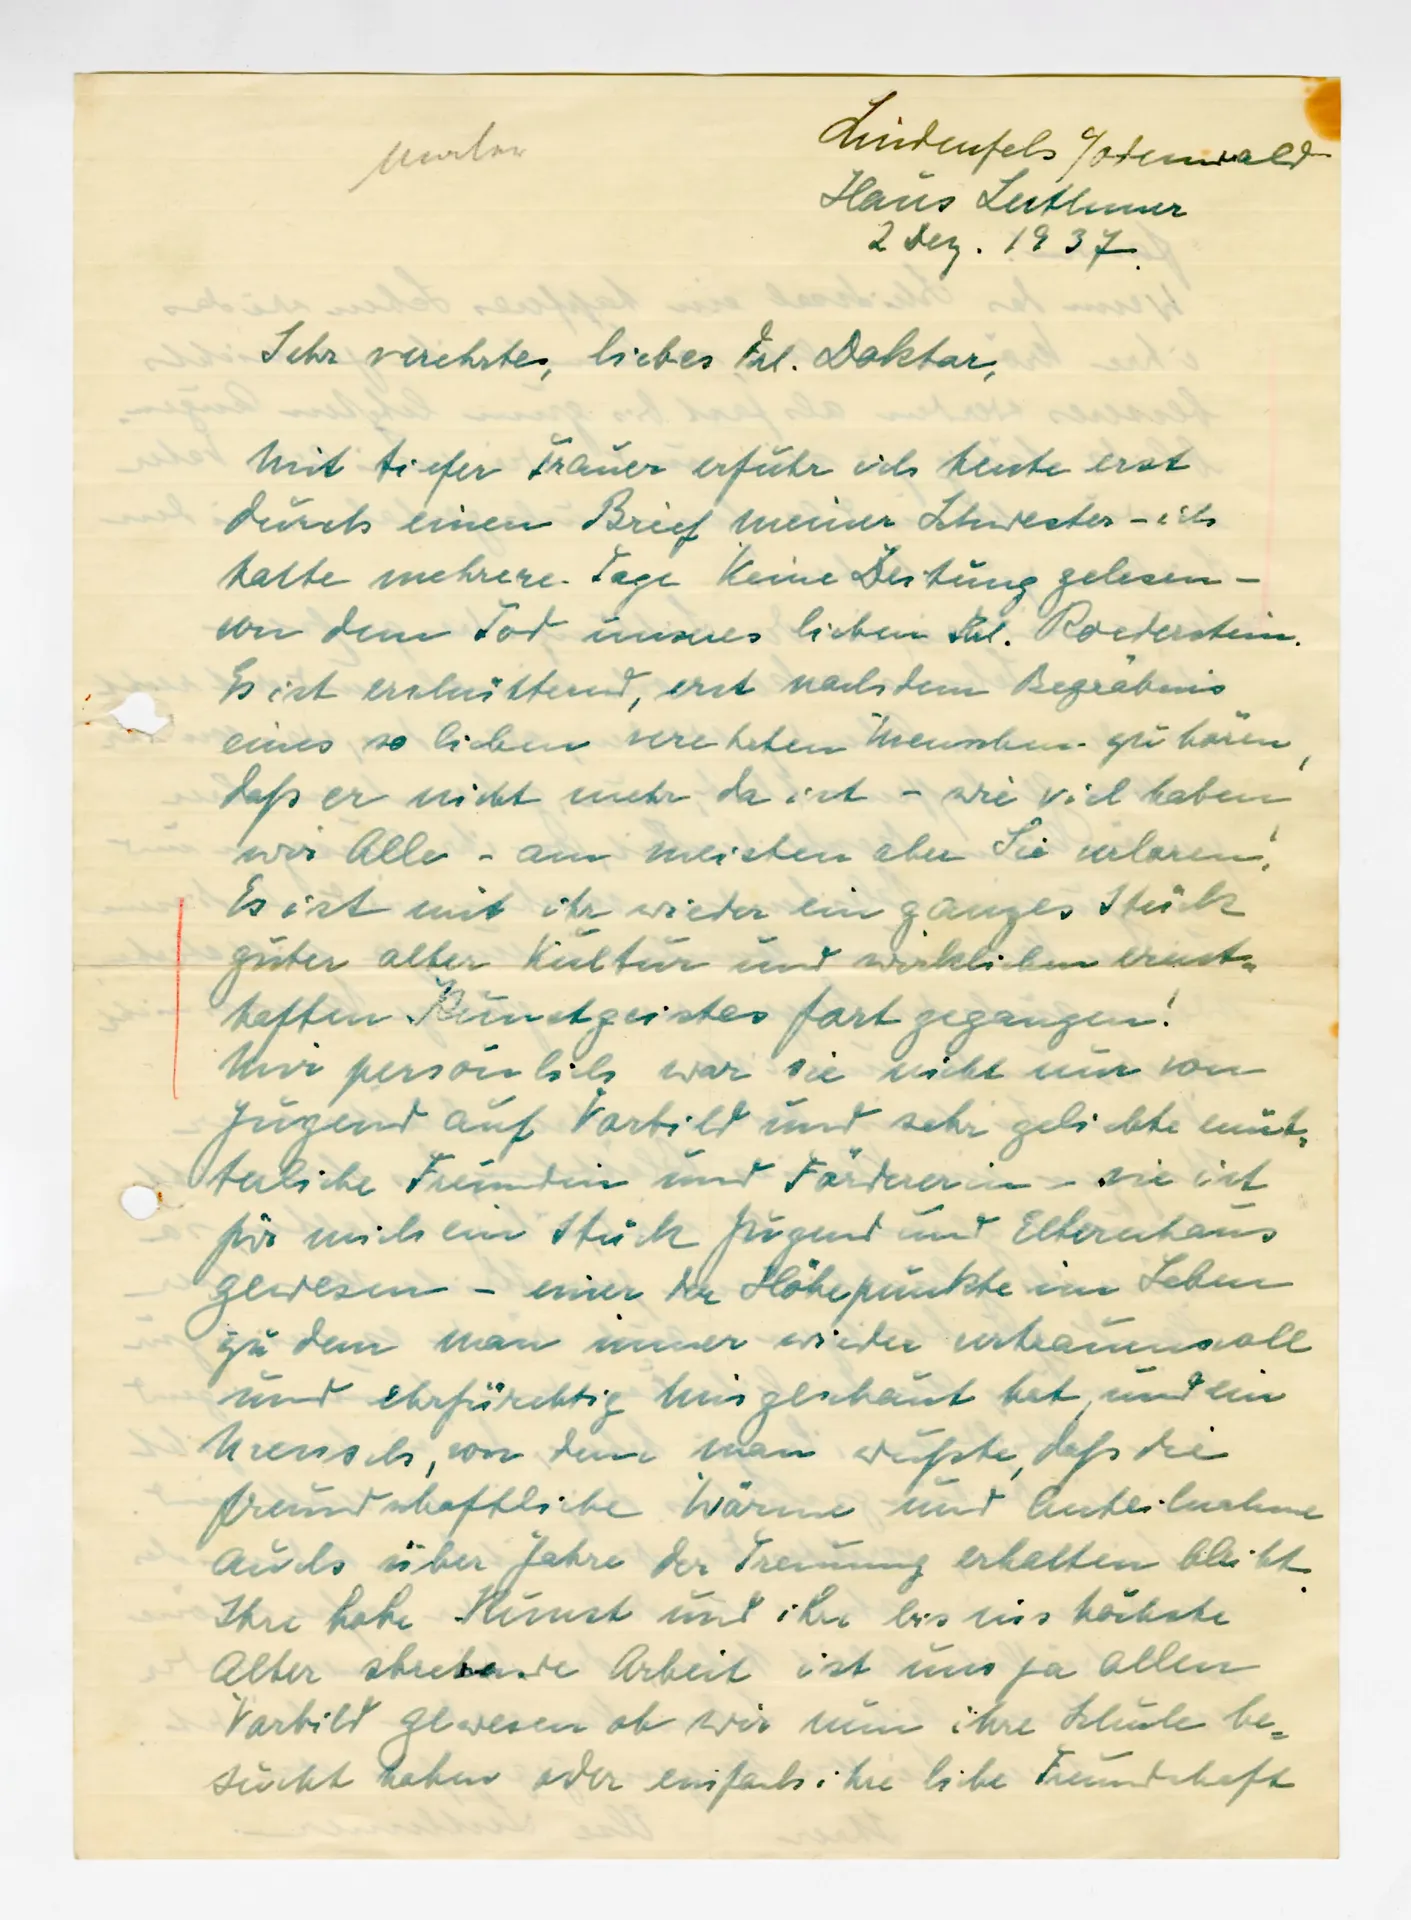 Lindenfels i/Odenwald
Haus Leithmer
2 Dez. 1937.
Sehr verehrtes, liebes Frl. Doktor,
Mit tiefer Trauer erfuhr ich heute erst
durch einen Brief meiner Schwester – ich
hatte mehrere Tage keine Zeitung gelesen –
von dem Tod unseres lieben Frl. Roederstein.
Es ist erschütternd, erst nach dem Begräbnis
eines so lieben verehrten Menschen zu hören,
daß er nicht mehr da ist – wie viel haben
wir Alle – am meisten aber Sie verloren!
Es ist mit ihr wieder ein ganzes Stück
guter alter Kultur und wirklichen ernst=
haften Kunstgeistes fort gegangen!
Mir persönlich war sie nicht nur von
Jugend auf Vorbild und sehr geliebte müt=
terliche Freundin und Fördererin – sie ist
für mich ein Stück Jugend und Elternhaus
gewesen – einer der Höhepunkte im Leben
zu dem man immer wieder vertrauensvoll
und ehrfürchtig hingeschaut hat, und ein
Mensch, von dem man wußte, daß die
freundschaftliche Wärme und Anteilnahme
auch über Jahre der Trennung erhalten bleibt.
Ihre hohe Kunst und ihre bis ins höchste
Alter strebende Arbeit ist uns ja allen
Vorbild gewesen ob wir nun ihre Schule be=
sucht haben oder einfach ihre liebe Freundschaft